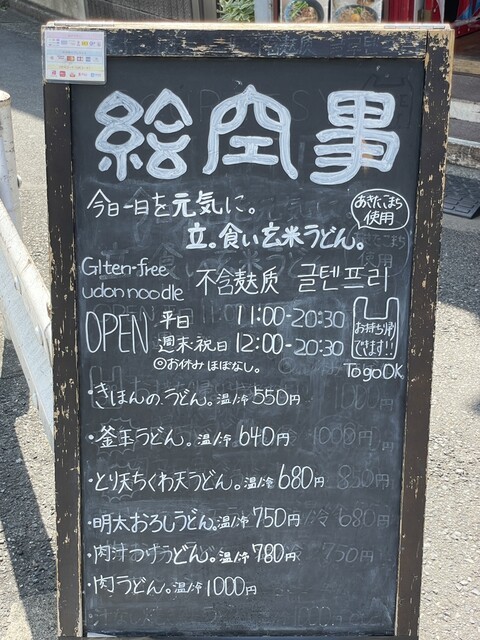 絵空事
今日一日を元気に。
あきたこまち
使用
立。食い玄米うどん。
Glten-free
udon noodle
不含麸质 글텐프리
OPEN
平日 11:00-20:30
週末・祝日 12:00-20:30
◎お休みほぼなし。
お持ち帰り
できます!!
To go OK
・きほんのうどん。温/冷 550円
・釜玉うどん。温/冷 640円
・とり天ちくわ天うどん。温/冷 680円
・明太おろしうどん。温/冷 750円
・肉汁つけうどん。温/冷 780円
・肉うどん。温/冷 1000円